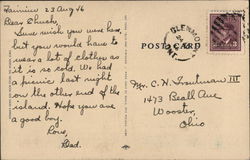 23 Aug 46
Dear Chuck,
Sure wish you were here,
but you would have to
wear a lot of clothes as
it is so cold. We had
a picnic last night
on the other end of the
island. Hope you are
a good boy.
Love,
Dad.
POSTCARD
Mr. C. H. Troutman III
1473 Beall Ave
Wooster,
Ohio